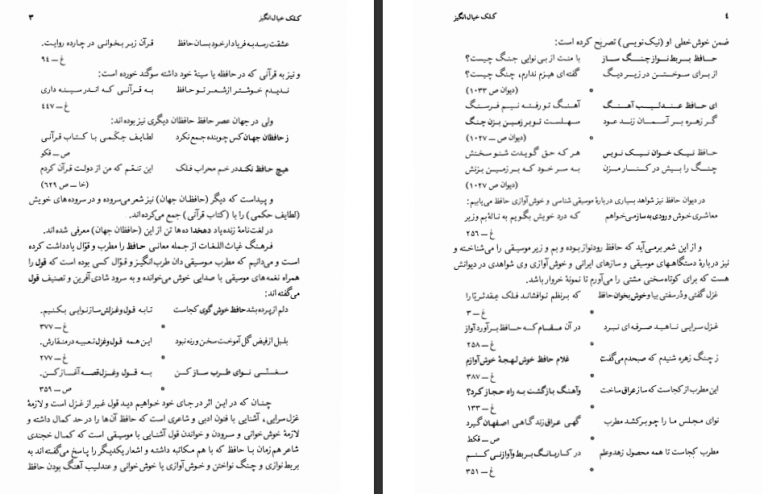 کلک خیال‌انگیز ۳
عشقت رسد به فریاد ار خود بسان حافظ قرآن زبر بخوانی در چارده روایت.
غ ــ ۹٤
و نیز به قرآنی که در حافظه یا سینهٔ خود داشته سوگند خورده است:
ندیدم خوشتر از شعر تو حافظ به قرآنی که اندر سینه داری
غ ــ ٤٤۷
ولی در جهان عصر حافظ حافظان دیگری نیز بوده‌اند:
ز حافظان جهان کس چو بنده جمع نکرد لطایف حکمی با کتاب قرآنی
ص ــ قکو
هیچ حافظ نکند در خم محراب فلک این تنعم که من از دولت قرآن کردم
(خا ــ ص ٦۲۹)
و پیداست که دیگر (حافظان جهان) نیز شعر می‌سروده و در سروده‌های خویش
(لطایف حکمی) را با (کتاب قرآنی) جمع می‌کرده‌اند.
در لغت‌نامهٔ زنده‌یاد دهخدا ده‌ها تن از این (حافظان جهان) معرفی شده‌اند.
فرهنگ غیاث‌اللغات از جمله معانی حافظ را مطرب و قوّال یادداشت کرده
است و می‌دانیم که مطرب موسیقی دان طرب‌انگیز و قوّال کسی بوده است که قول را
همراه نغمه‌های موسیقی با صدایی خوش می‌خوانده و به سرود شادی آفرین و تصنیف قول
می‌گفته‌اند:
دلم از پرده بشد حافظ خوش گوی کجاست تا به قول و غزلش ساز نوایی بکنیم.
غ ــ ۳۷۷ *
بلبل از فیض گل آموخت سخن ورنه نبود این همه قول و غزل تعبیه در منقارش.
غ ــ ۲۷۷ *
مغنّی نوای طرب ساز کن به قول و غزل قصه آغاز کن.
ص ــ ۳۵۹
چنان که در این اثر در جای خود خواهیم دید قول غیر از غزل است و لازمهٔ
غزل‌سرایی، آشنایی با فنون ادبی و شاعری است که حافظ آن‌ها را در حد کمال داشته و
لازمهٔ خوش‌خوانی و سرودن و خواندن قول آشنایی با موسیقی است که کمال خجندی
شاعر هم‌زمان با حافظ که با هم مکاتبه داشته و اشعار یکدیگر را پاسخ می‌گفته‌اند به
بربط‌نوازی و چنگ نواختن و خوش‌آوازی یا خوش‌خوانی و عندلیب آهنگ بودن حافظ
٤ کلک خیال‌انگیز
ضمن خوش‌خطی او (نیک‌نویسی) تصریح کرده است:
حافظ بربط نواز چنگ ساز با منت از بی‌نوایی جنگ چیست؟
از برای سوختن در زیر دیگ گفته‌ای هیزم ندارم، چنگ چیست؟
* (دیوان ص ۱۰۳۳)
ای حافظ عندلیب آهنگ آهنگ تو رفته نیم فرسنگ
گر زهره بر آسمان زند عود سهلست تو بر زمین بزن چنگ
* (دیوان ص ــ ۱۰۲۷)
حافظ نیک خوان نیک نویس هر که حق گویدت شنو سخنش
چنگ را بیش در کنار مزن به سر خود که بر زمین بزنش
(دیوان ص ۱۰۲۷)
در دیوان حافظ نیز شواهد بسیاری دربارهٔ موسیقی شناسی و خوش‌آوازی حافظ می‌یابیم:
معاشری خوش و رودی به ساز می‌خواهم که درد خویش بگویم به نالهٔ بم و زیر
غ ــ ۲۵٦
و از این شعر برمی‌آید که حافظ رودنواز بوده و بم و زیر موسیقی را می‌شناخته و
نیز دربارهٔ دستگاههای موسیقی و سازهای ایرانی و خوش‌آوازی وی شواهدی در دیوانش
هست که برای کوتاه‌سخنی مشتی را می‌آورم تا نمونهٔ خروار باشد.
غزل گفتی و دُر سفتی بیا و خوش بخوان حافظ که بر نظم تو افشاند فلک عقد ثریّا را
* غ ــ ۳
غزل سرایی ناهید صرفه‌ای نبرد در آن مقام که حافظ برآورد آواز
* غ ــ ۲۵۸
ز چنگ زهره شنیدم که صبحدم می‌گفت غلام حافظ خوش لهجهٔ خوش‌آوازم
* غ ــ ۳۸۷
این مطرب از کجاست که ساز عراق ساخت و آهنگ بازگشت به راه حجاز کرد؟
* غ ــ ۱۳۳
نوای مجلس ما را چو برکشد مطرب گهی عراق زند گاهی اصفهان گیرد
* ص ــ قکط
مطرب کجاست تا همه محصول زهد و علم در کار بانگ بربط و آواز نی کنم
* غ ــ ۳۵۱